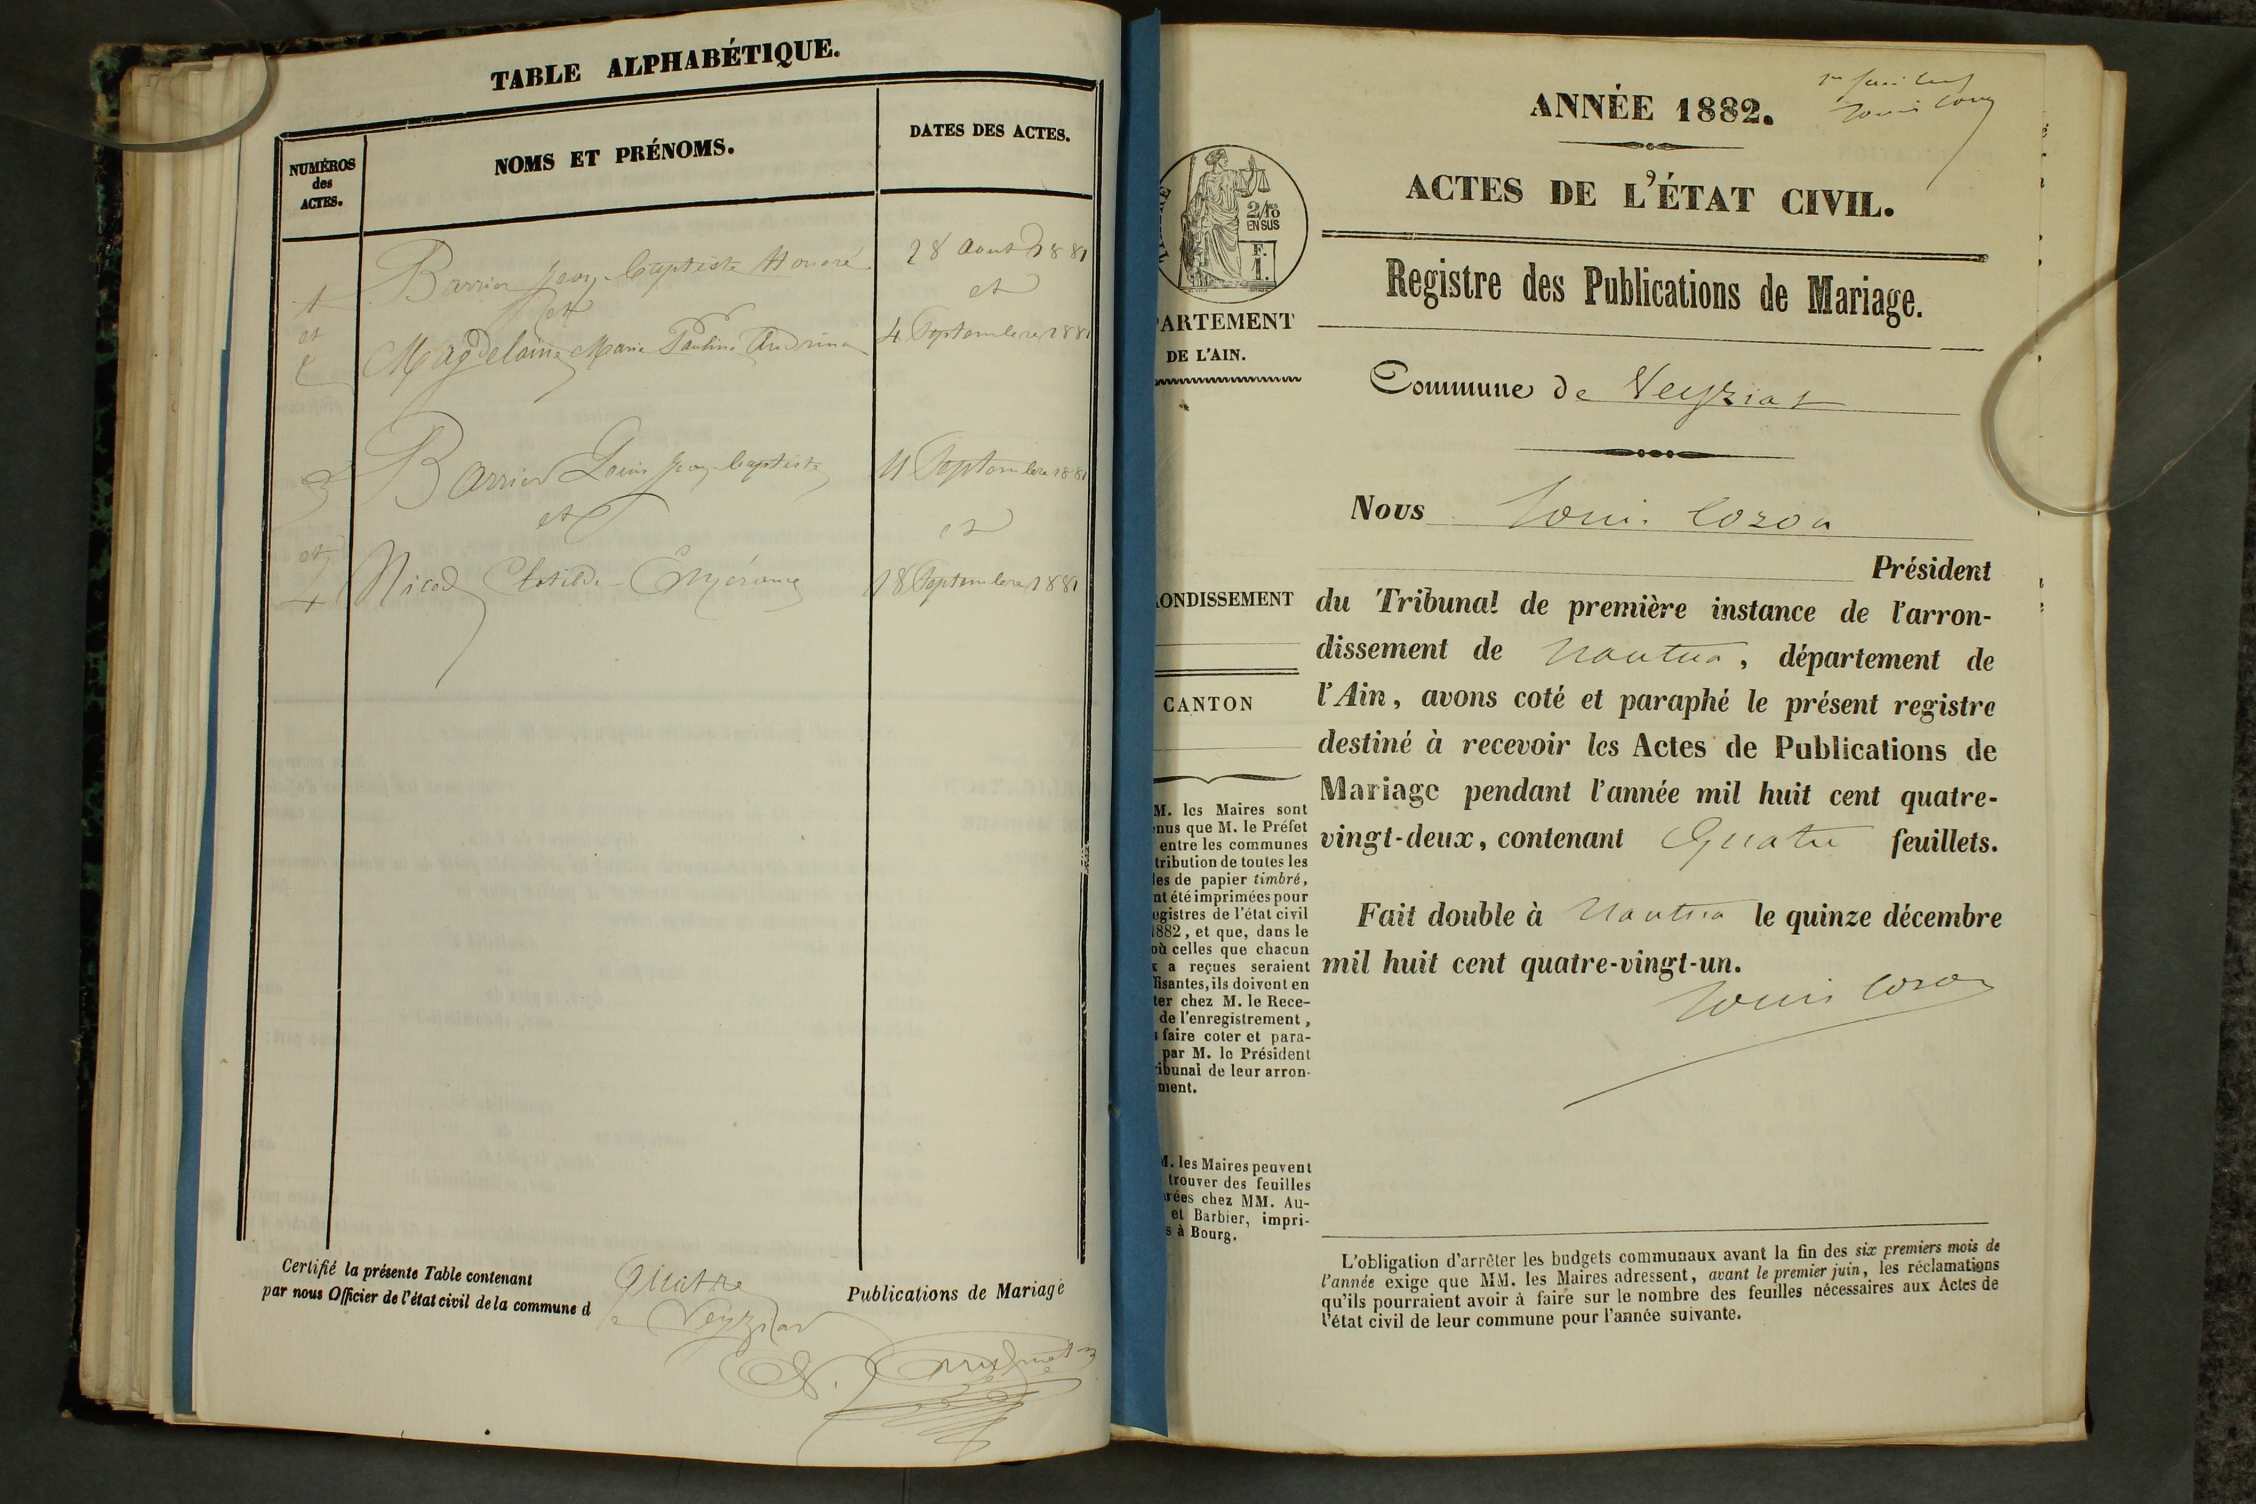 TABLE ALPHABÉTIQUE.
NUMÉROS
des
ACTES.
NOMS ET PRÉNOMS.
DATES DES ACTES.
1
et
2
Barrier Jean-baptiste Honoré
et
Magdelaine Marie Pauline
28 Aout 1881
et
4 Septembre 1881
3
et
4
Barrier Louis Jean-baptiste
et
Nicod Clotilde
11 Septembre 1881
et
18 Septembre 1881
Certifié la présente Table contenant Quatre Publications de Mariage
par nous Officier de l'état civil de la commune de Veyziat
ANNÉE 1882.
Louis Cozon
ACTES DE L'ÉTAT CIVIL.
2/10
EN SUS
F.
1.
Registre des Publications de Mariage.
PARTEMENT
DE L'AIN.
Commune de Veyziat
Nous Louis Cozon
Président
du Tribunal de première instance de l'arron-
dissement de Nantua, département de
l'Ain, avons coté et paraphé le présent registre
destiné à recevoir les Actes de Publications de
Mariage pendant l'année mil huit cent quatre-
vingt-deux, contenant Quatre feuillets.
Fait double à Nantua le quinze décembre
mil huit cent quatre-vingt-un.
Louis Cozon
ONDISSEMENT
CANTON
M. les Maires sont
nus que M. le Préfet
entre les communes
tribution de toutes les
les de papier timbré,
nt été imprimées pour
egistres de l'état civil
1882, et que, dans le
où celles que chacun
x a reçues seraient
fisantes, ils doivent en
ter chez M. le Rece-
de l'enregistrement,
faire coter et para-
par M. le Président
ribunal de leur arron-
ment.
M. les Maires peuvent
trouver des feuilles
rées chez MM. Au-
et Barbier, impri-
s à Bourg.
L'obligation d'arrêter les budgets communaux avant la fin des six premiers mois de
l'année exige que MM. les Maires adressent, avant le premier juin, les réclamations
qu'ils pourraient avoir à faire sur le nombre des feuilles nécessaires aux Actes de
l'état civil de leur commune pour l'année suivante.